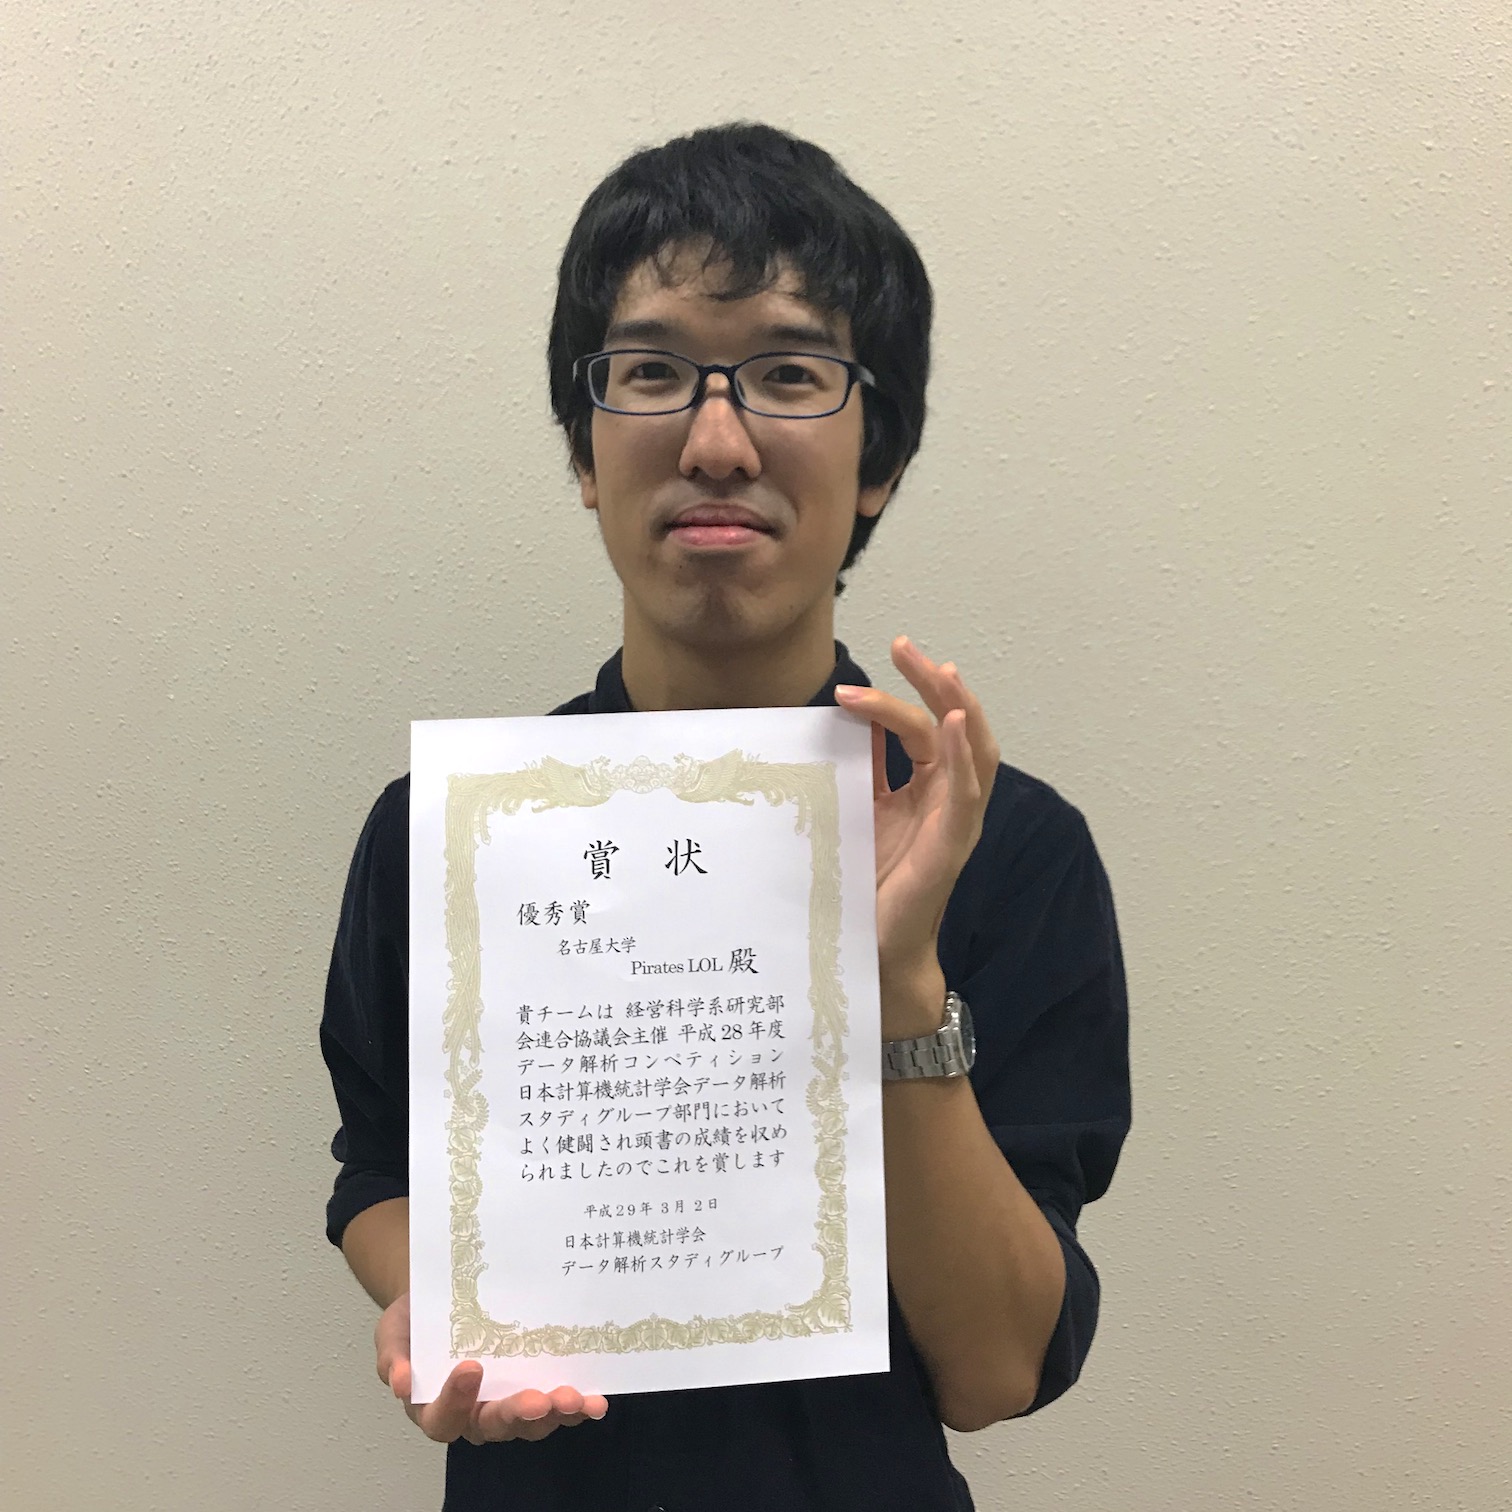 賞状
優秀賞
名古屋大学
Pirates LOL 殿
貴チームは 経営科学系研究部
会連合協議会主催 平成28年度
データ解析コンペティション
日本計算機統計学会データ解析
スタディグループ部門において
よく健闘され頭書の成績を収め
られましたのでこれを賞します
平成29年 3月 2日
日本計算機統計学会
データ解析スタディグループ